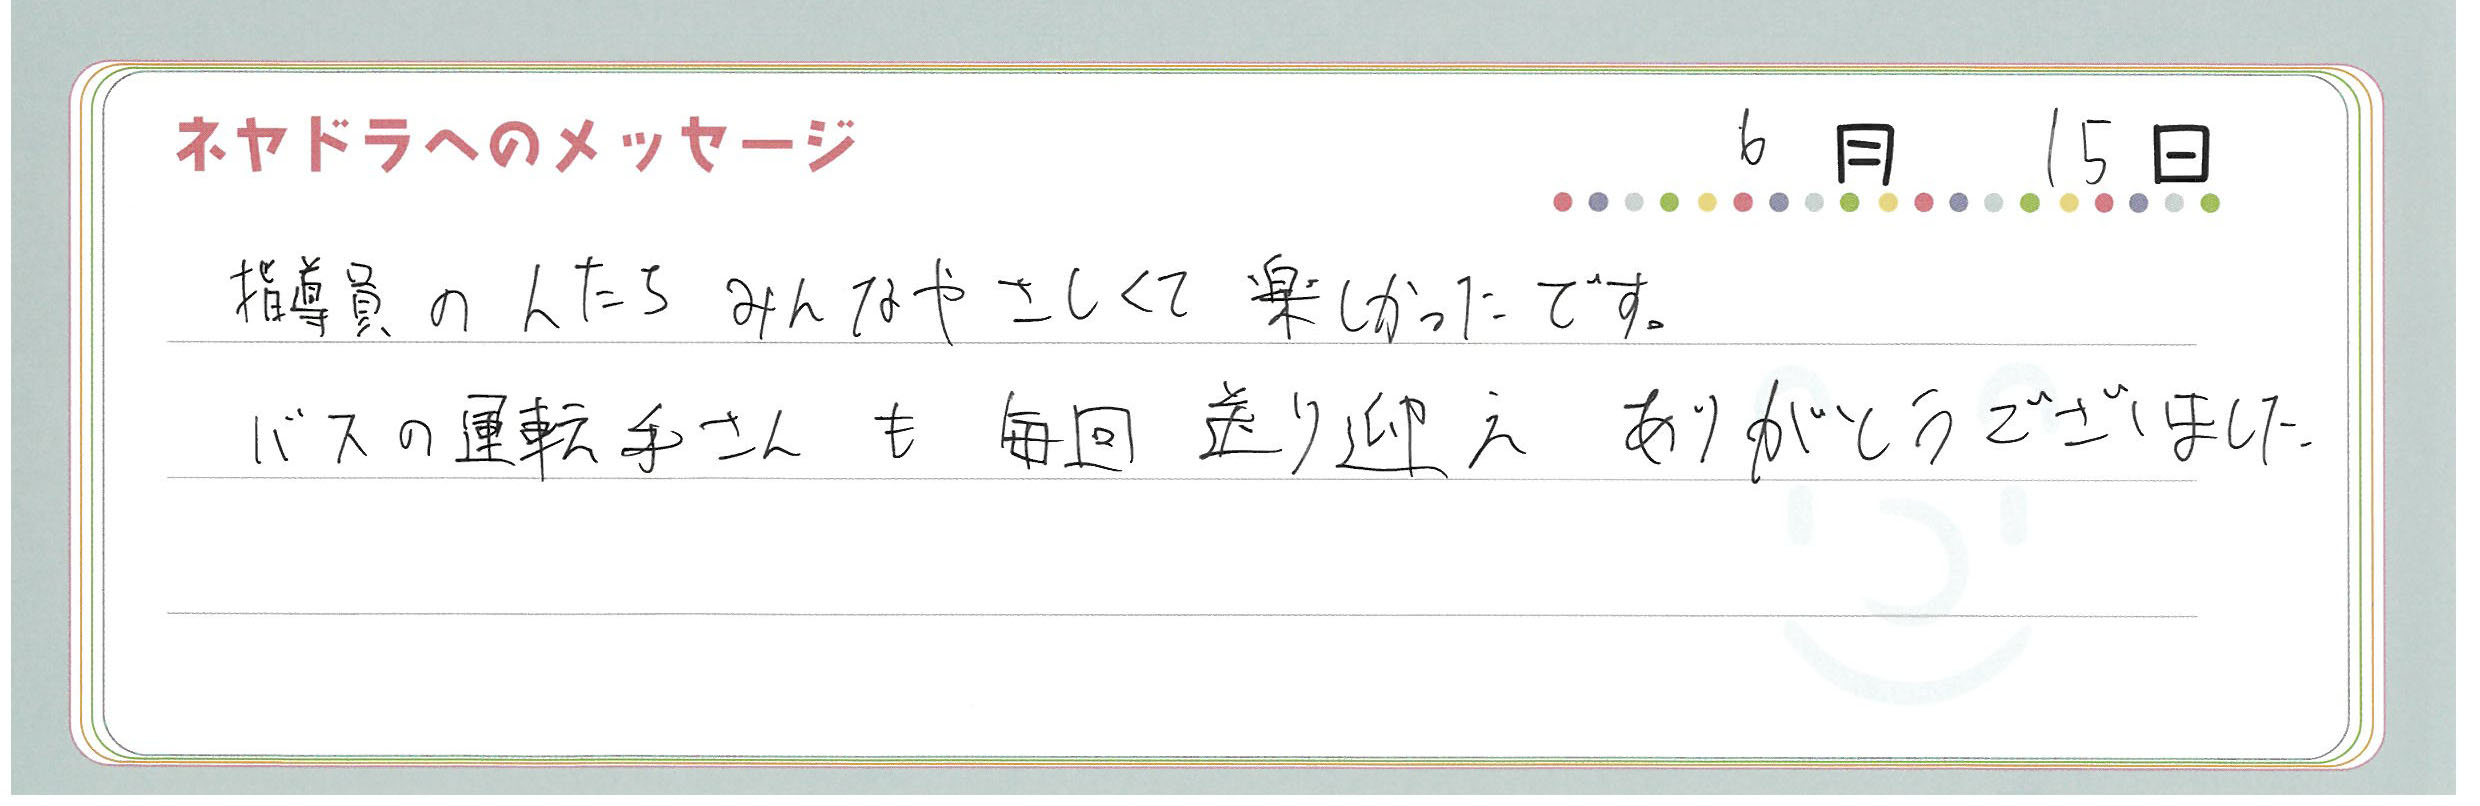 ネヤドラへのメッセージ
6月 15日
指導員の人たちみんなやさしくて楽しかったです。
バスの運転手さんも毎回送り迎えありがとうございました